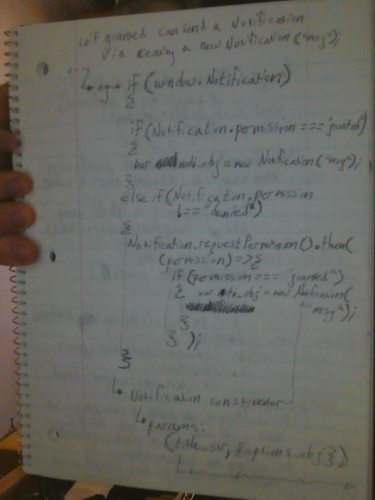 ↳ if granted can send a Notification
via creating a new Notification("msg");
↳ eg→ if (window.Notification)
{
if(Notification.permission === "granted")
{
var noti_obj = new Notification("msg");
}
else if(Notification.permission
!== "denied")
{
Notification.requestPermission().then(
(permission) => {
if (permission === "granted")
{ var noti_obj = new Notification(
"msg");
}
} );
}
↳ Notification constructor
↳ params:
(title_str, {options_obj})